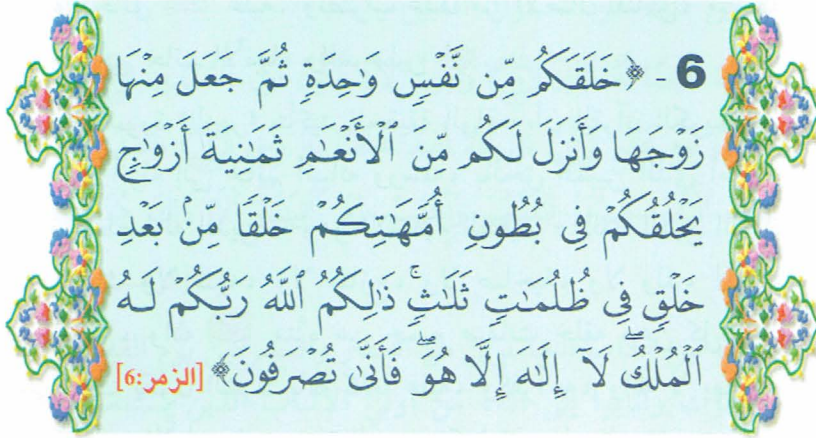 6 - ﴿خَلَقَكُم مِّن نَّفْسٍ وَٰحِدَةٍ ثُمَّ جَعَلَ مِنْهَا
زَوْجَهَا وَأَنزَلَ لَكُم مِّنَ ٱلْأَنْعَٰمِ ثَمَٰنِيَةَ أَزْوَٰجٍ
يَخْلُقُكُمْ فِى بُطُونِ أُمَّهَٰتِكُمْ خَلْقًا مِّنۢ بَعْدِ
خَلْقٍ فِى ظُلُمَٰتٍ ثَلَٰثٍ ۚ ذَٰلِكُمُ ٱللَّهُ رَبُّكُمْ لَهُ
ٱلْمُلْكُ ۖ لَآ إِلَٰهَ إِلَّا هُوَ ۖ فَأَنَّىٰ تُصْرَفُونَ﴾ [الزمر:6]